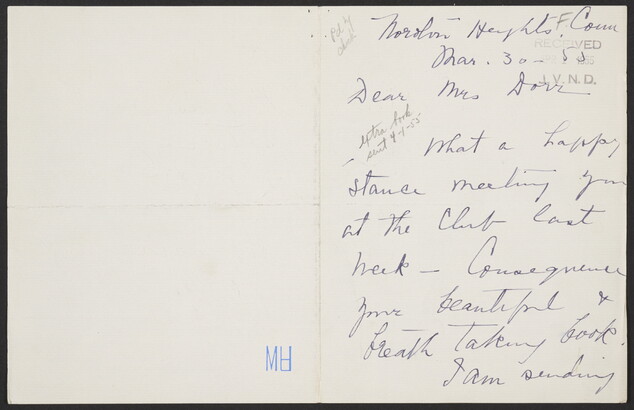 Pd by
check
Noroton Heights, Conn
F
RECEIVED
Mar. 30 - 55
J.V.N.D.
Dear Mrs Dorr
extra book
sent 4-1-55
- What a happy
stance meeting you
at the Club last
week - Consequence
your beautiful &
breath taking book.
I am sending
MH